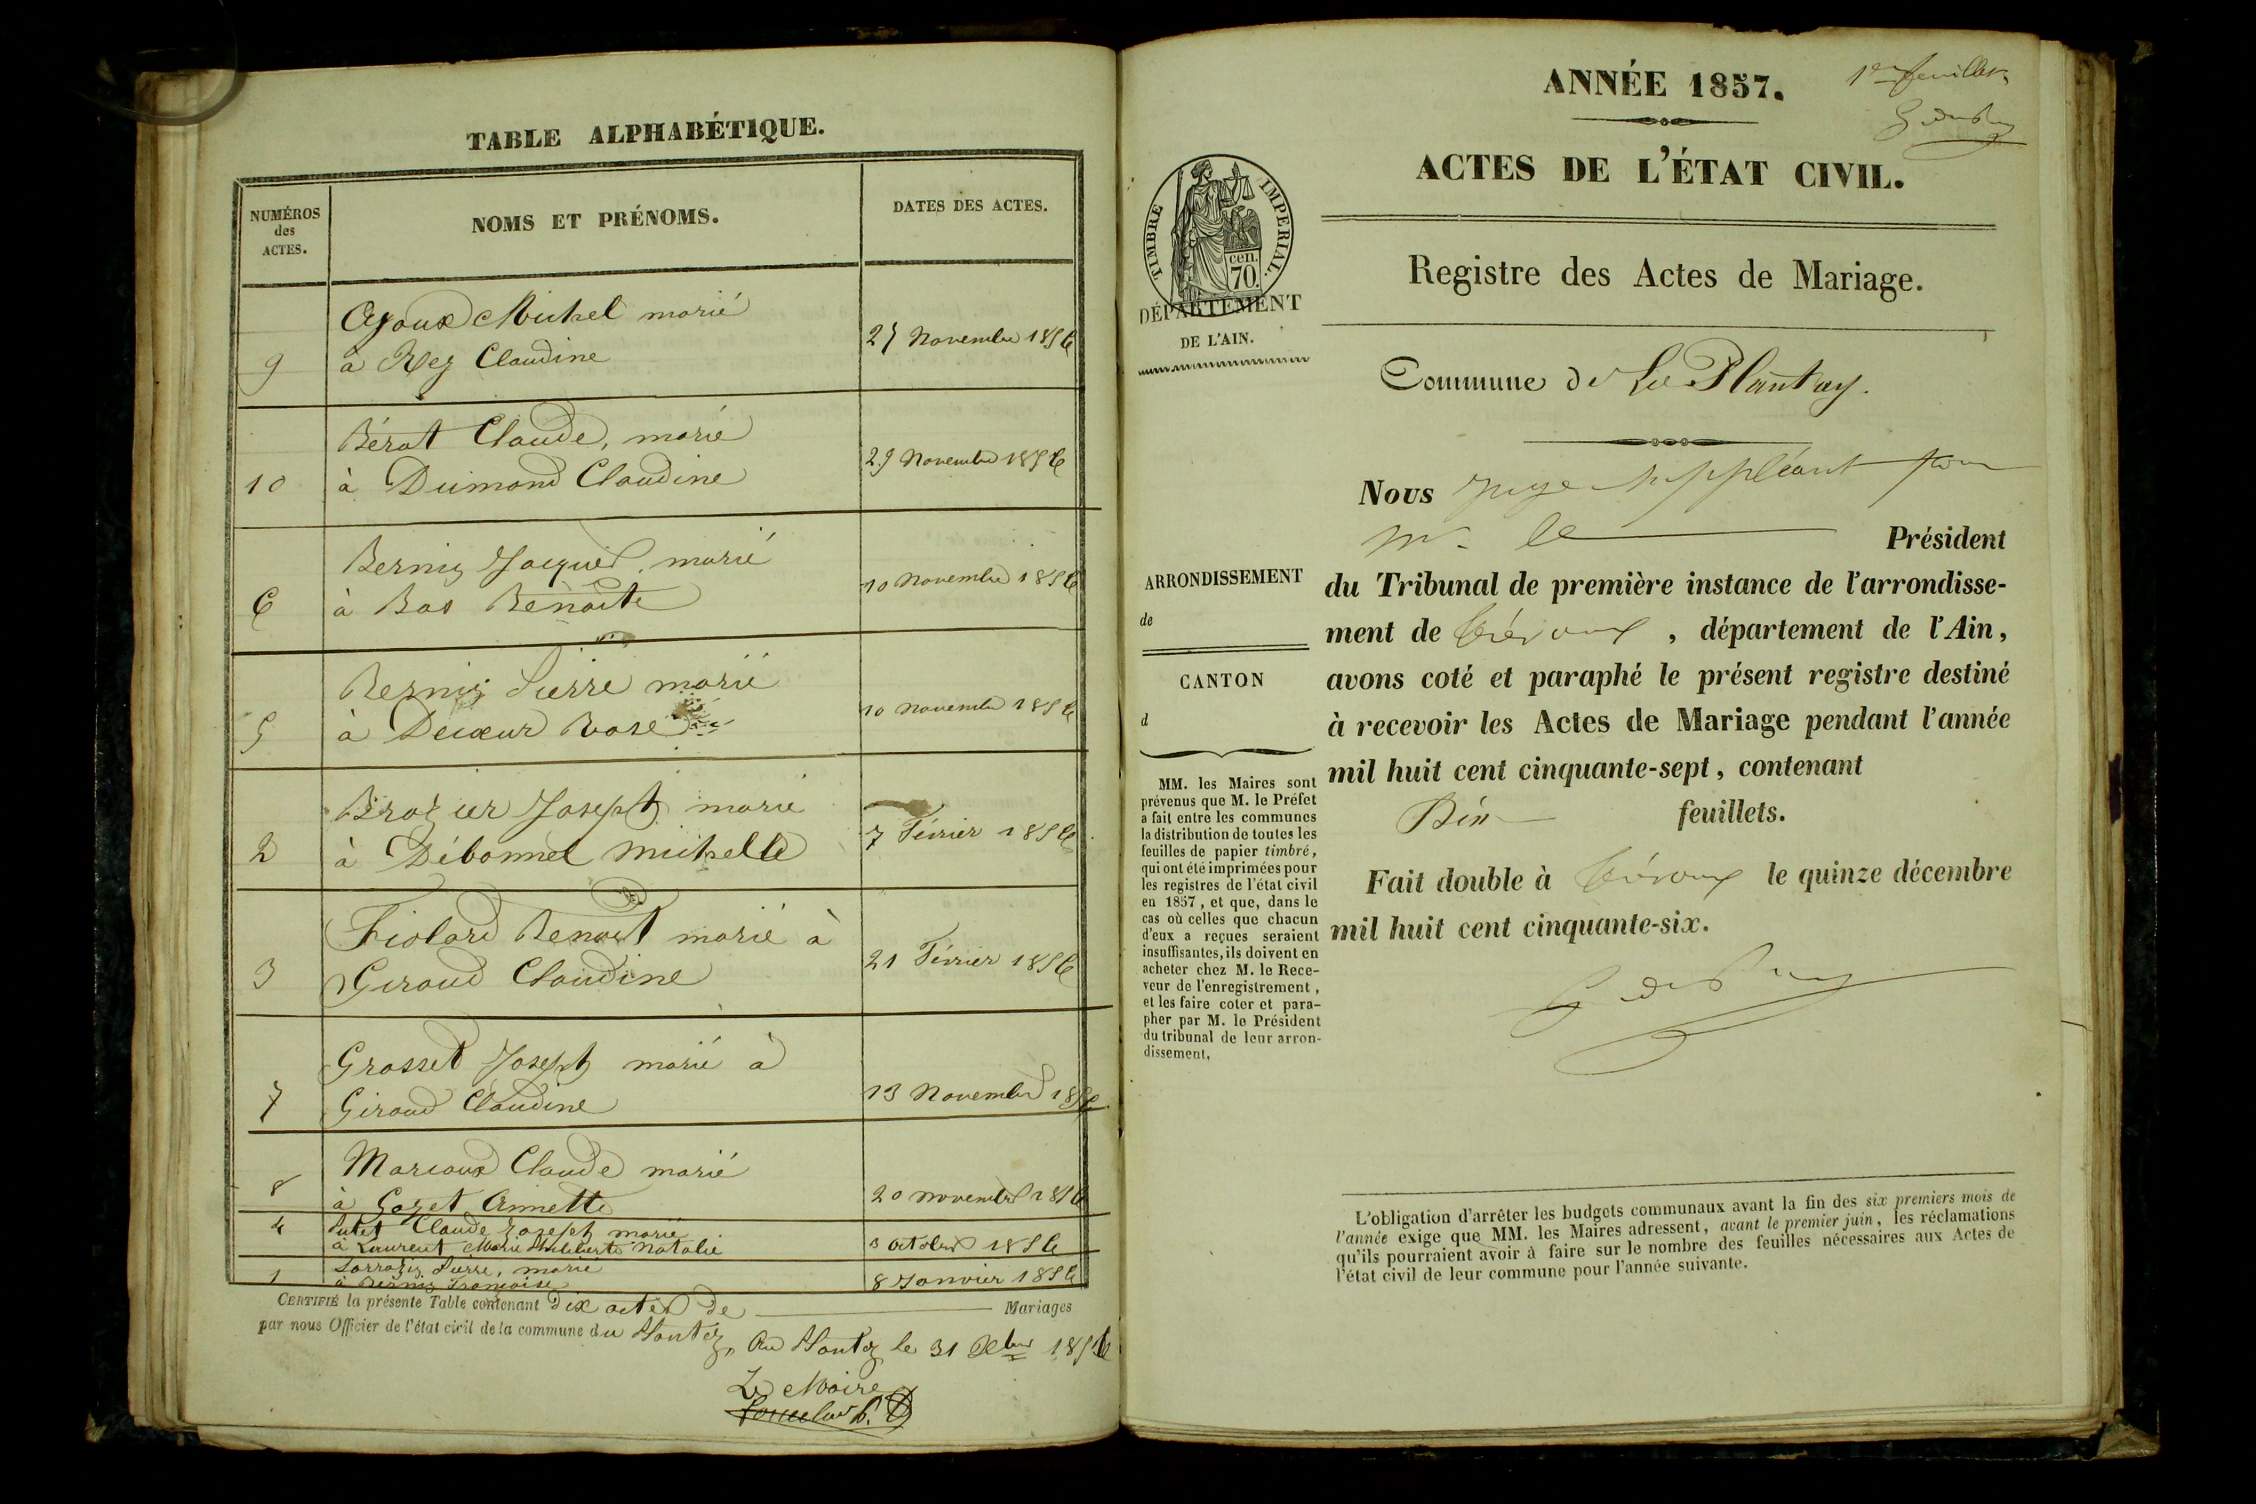 TABLE ALPHABÉTIQUE.
NUMÉROS
des
ACTES.
NOMS ET PRÉNOMS.
DATES DES ACTES.
Michel marié
9
à Rey Claudine
Novembre 1856
Bérat Claude, marié
10
à Dumond Claudine
29 Novembre 1856
Berniz Jacques, marié
6
à Bas Benoite
10 Novembre 1856
Berniz Pierre marié
5
à Decœur Rose
10 Novembre 1856
Brozier Joseph marié
2
à Débonnel Michelle
7 Février 1856
Fiolard Benoit marié à
3
Giraud Claudine
21 Février 1856
Grosset Joseph marié à
7
Giraud Claudine
13 Novembre 1856
Marcoux Claude marié
8
à Gozet Annette
20 Novembre 1856
4
Putet Claude Joseph marié
à Laurent Marie Philiberte Natalie
3 octobre 1856
1
Pierre, marié
à Berniz Françoise
8 Janvier 1856
CERTIFIÉ la présente Table contenant dix actes de Mariages
par nous Officier de l'état civil de la commune du
le 31 Xbre 1856
Le Maire
1er feuillet
ANNÉE 1857.
ACTES DE L'ÉTAT CIVIL.
TIMBRE IMPERIAL.
cen.
70.
DÉPARTEMENT
DE L'AIN.
Registre des Actes de Mariage.
Commune de Le Plantay.
Nous Juge suppléant pour
Mr. le Président
du Tribunal de première instance de l'arrondisse-
ment de Trévoux, département de l'Ain,
avons coté et paraphé le présent registre destiné
à recevoir les Actes de Mariage pendant l'année
mil huit cent cinquante-sept, contenant
feuillets.
Fait double à Trévoux le quinze décembre
mil huit cent cinquante-six.
ARRONDISSEMENT
de
CANTON
d
MM. les Maires sont
prévenus que M. le Préfet
a fait entre les communes
la distribution de toutes les
feuilles de papier timbré,
qui ont été imprimées pour
les registres de l'état civil
en 1857, et que, dans le
cas où celles que chacun
d'eux a reçues seraient
insuffisantes, ils doivent en
acheter chez M. le Rece-
veur de l'enregistrement,
et les faire coter et para-
pher par M. le Président
du tribunal de leur arron-
dissement.
L'obligation d'arrêter les budgets communaux avant la fin des six premiers mois de
l'année exige que MM. les Maires adressent, avant le premier juin, les réclamations
qu'ils pourraient avoir à faire sur le nombre des feuilles nécessaires aux Actes de
l'état civil de leur commune pour l'année suivante.